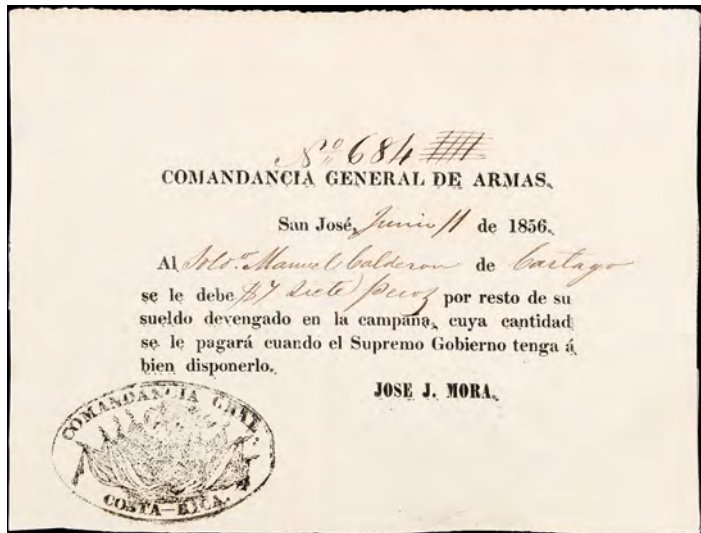 Nº 684
COMANDANCIA GENERAL DE ARMAS.
San José, Junio 11 de 1856.
Al Soldº Manuel Calderon de Cartago
se le debe $7 siete pesos por resto de su
sueldo devengado en la campaña, cuya cantidad
se le pagará cuando el Supremo Gobierno tenga á
bien disponerlo.
JOSE J. MORA.
COMANDANCIA GRAL.
COSTA-RICA.